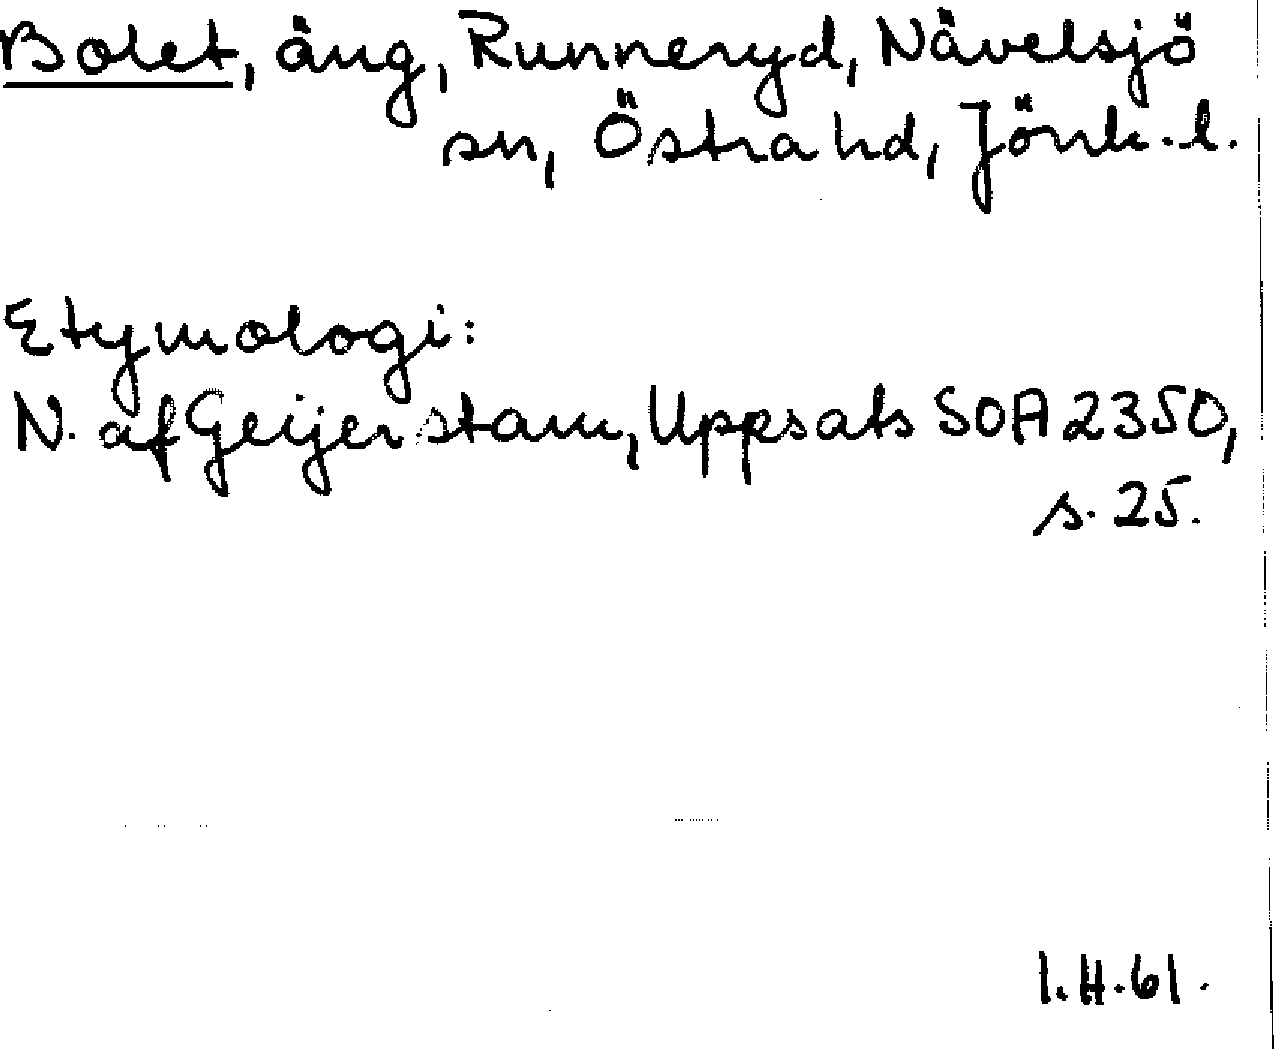 Bolet, äng, Runneryd, Nävelsjö
sn, Östra hd, Jönk. l.
Etymologi:
N. af Geijerstam, Uppsats SOA 2350,
s. 25.
I.H.61.